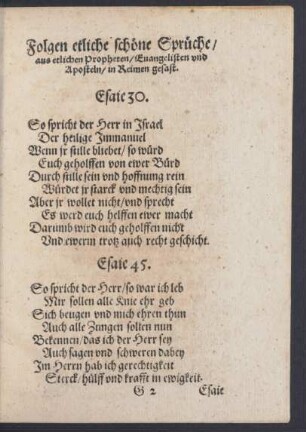 Folgen etliche schöne Sprüche/
aus etlichen Propheten/Euangelisten vnd
Aposteln/ in Reimen gefast.
Esaie 30.
So spricht der Herr in Israel
Der heilige Immanuel
Wenn jr stille bliebet/ so würd
Euch geholffen von ewer Bürd
Durch stille sein vnd hoffnung rein
Würdet jr starck vnd mechtig sein
Aber jr wollet nicht/vnd sprecht
Es werd euch helffen ewer macht
Darumb wird euch geholffen nicht
Vnd ewerm trotz auch recht geschicht.
Esaie 45.
So spricht der Herr/so war ich leb
Mir sollen alle Knie ehr geb
Sich beugen vnd mich ehren thun
Auch alle Zungen solten nun
Bekennen/das ich der Herr sey
Auch sagen vnd schweren dabey
Im Herrn hab ich gerechtigkeit
Sterck/hülff vnd krafft in ewigkeit.
G 2 Esaie